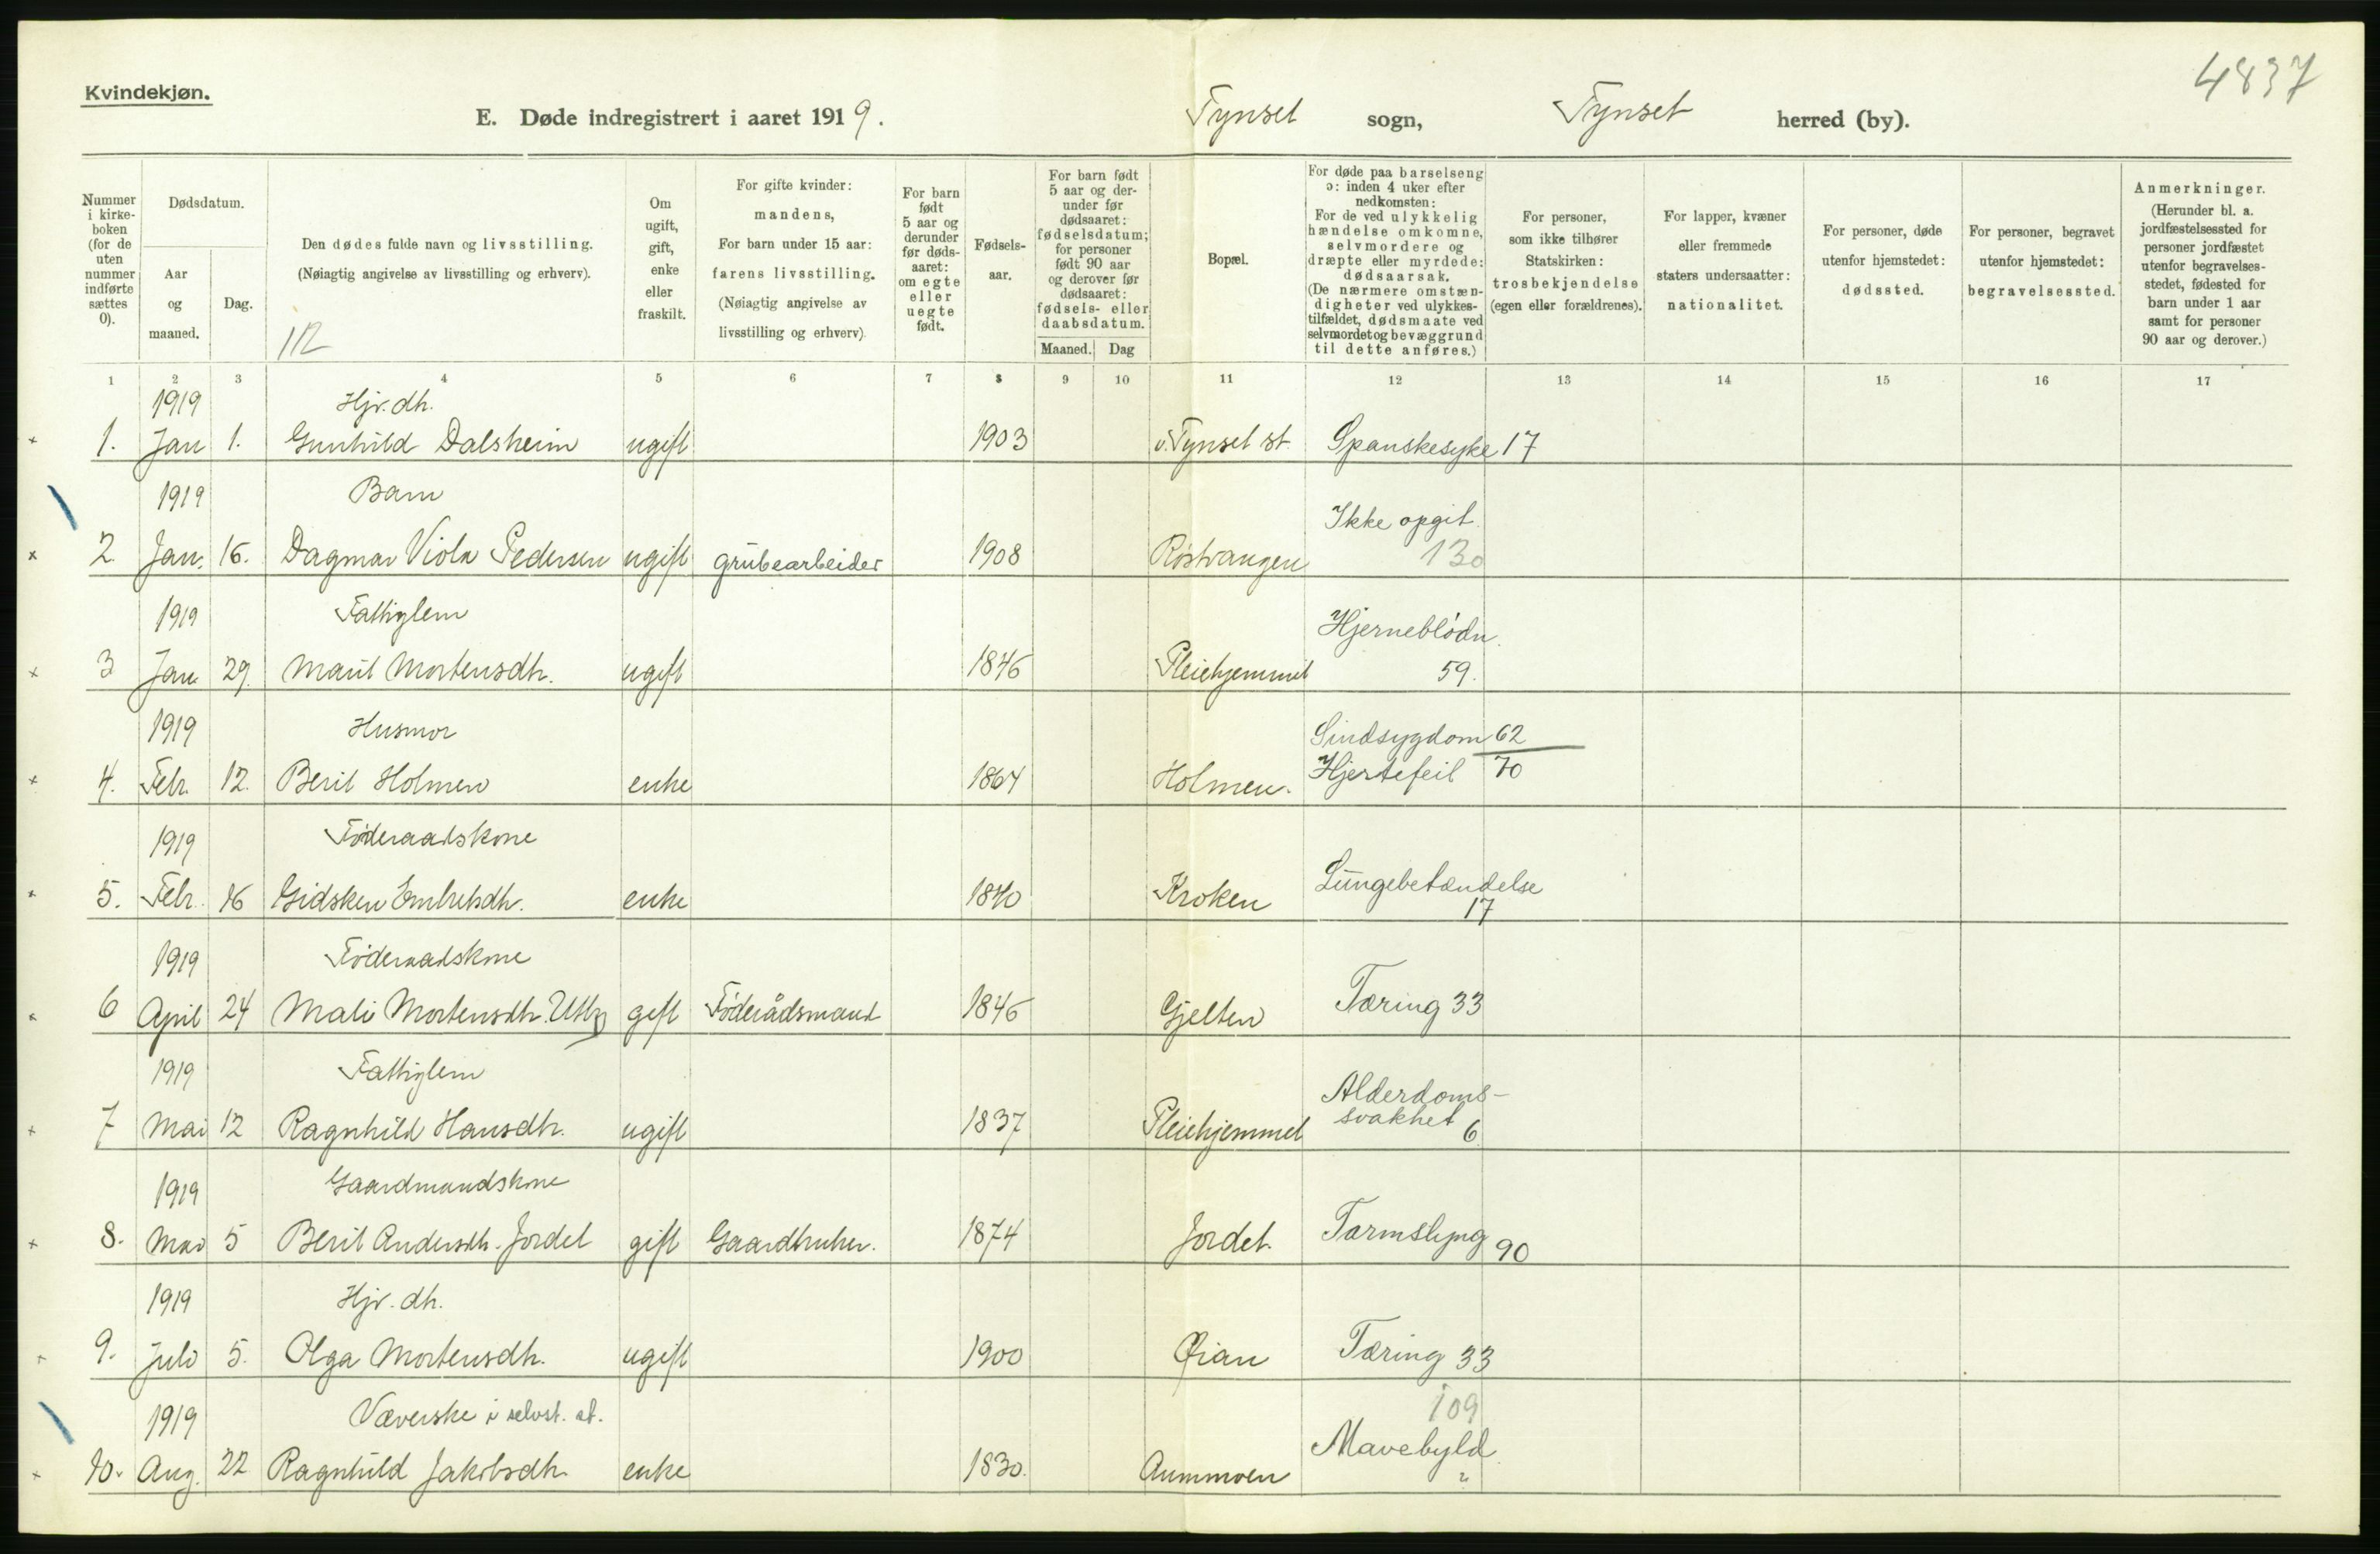 4837
Kvindekjøn.
E. Døde indregistrert i aaret 1919. Tynset sogn, Tynset herred (by).
Nummer i kirkeboken (for de uten nummer indførte sættes 0).
Dødsdatum.
Aar og maaned.
Dag.
Den dødes fulde navn og livsstilling.
(Nøiagtig angivelse av livsstilling og erhverv).
Om ugift, gift, enke eller fraskilt.
For gifte kvinder: mandens,
For barn under 15 aar: farens livsstilling.
(Nøiagtig angivelse av livsstilling og erhverv).
For barn født 5 aar og derunder før dødsaaret: om egte eller uegte født.
Fødselsaar.
For barn født 5 aar og derunder før dødsaaret: fødselsdatum; for personer født 90 aar og derover før dødsaaret: fødsels- eller daabsdatum.
Maaned. Dag
Bopæl.
For døde paa barselseng ɔ: inden 4 uker efter nedkomsten:
For de ved ulykkelig hændelse omkomne, selvmordere og dræpte eller myrdede: dødsaarsak.
(De nærmere omstændigheter ved ulykkestilfældet, dødsmaate ved selvmordet og bevæggrund til dette anføres.)
For personer, som ikke tilhører Statskirken: trosbekjendelse (egen eller forældrenes).
For lapper, kvæner eller fremmede staters undersaatter: nationalitet.
For personer, døde utenfor hjemstedet: dødssted.
For personer, begravet utenfor hjemstedet: begravelsessted.
Anmerkninger.
(Herunder bl. a. jordfæstelsessted for personer jordfæstet utenfor begravelsesstedet, fødested for barn under 1 aar samt for personer 90 aar og derover.)
1 2 3 4 5 6 7 8 9 10 11 12 13 14 15 16 17
1919 Hjv. dh.
1. Jan 1. Gunhild Dalsheim ugift 1903 v. Tynset st. Spanskesyke 17
1919 Barn Ikke opgit.
2 Jan. 16. Dagmar Viola Pedersen ugift grubearbeider 1908 Røstvangen 130
1919 Fattiglem Hjerneblødn.
3 Jan 29. Marit Mortensdh. ugift 1846 Pleiehjemmet 59.
1919 Husmor Sindsygdom 62
4. Febr. 12. Berit Holmen enke 1864 Holmen. Hjertefeil 70
1919 Føderaadskone Lungebetændelse
5. Febr. 16 Gidsken Embretsdh. enke 1840 Kroken 17
1919 Føderaadskone
6 April 24 Mali Mortensdh. gift Føderådsmand 1846 Gjelten Tæring 33
1919 Fattiglem Alderdoms-
7 Mai 12 Ragnhild Hansdh. ugift 1837 Pleiehjemmet svakhet 6
1919 Gaardmandskone
8. Mai 5 Berit Andersdh. Jordet gift Gaardbruker. 1874 Jordet. Tarmslyng 90
1919 Hjv. dh.
9. Juli 5. Olga Mortensdh. ugift 1900 Øian Tæring 33
1919 Væverske i selvst. st. 109
10. Aug. 22 Ragnhild Jakobsdh. enke 1830. Aummoen Mavebyld
?